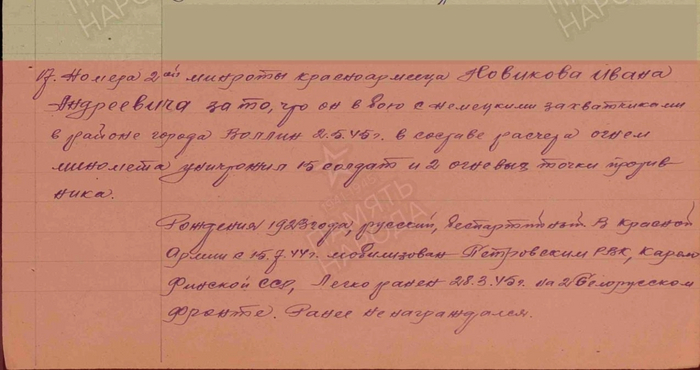 17. Номера 2ой минроты красноармейца Новикова Ивана
Андреевича за то, что он в бою с немецкими захватчиками
в районе города Воллин 2.5.45г. в составе расчета огнем
миномета уничтожил 15 солдат и 2 огневых точки против
ника.
Рождения 1923 года, русский, беспартийный. В Красной
Армии с 15.7.44г. мобилизован Петровским РВК, Карело
Финской ССР, Легко ранен 28.3.45г. на 2 Белорусском
фронте. Ранее не награждался.
ПАМЯТЬ
НАРОДА